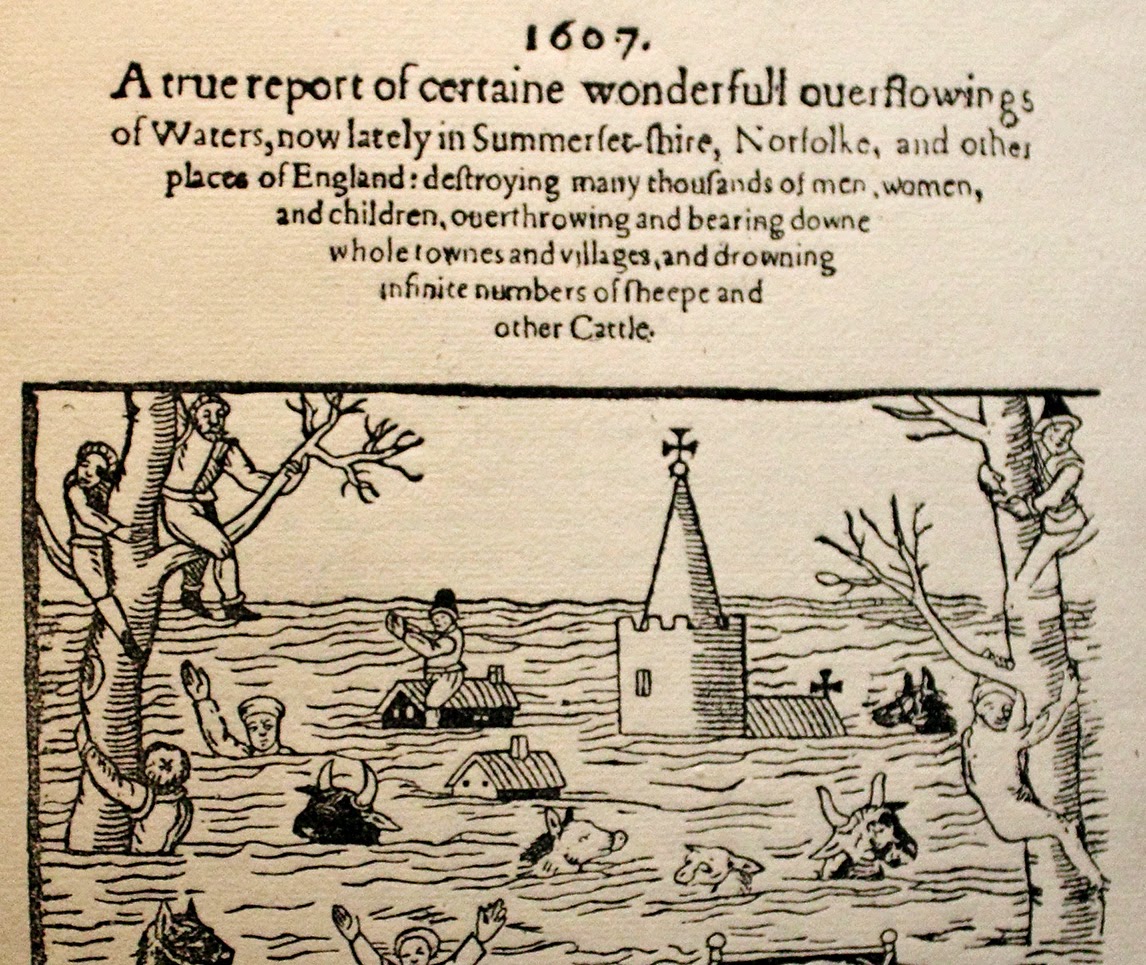 1607.
A true report of certaine wonderfull ouerflowings
of Waters, now lately in Summerſet-ſhire, Norfolke, and other
places of England: deſtroying many thouſands of men, women,
and children, ouerthrowing and bearing downe
whole townes and villages, and drowning
infinite numbers of ſheepe and
other Cattle.